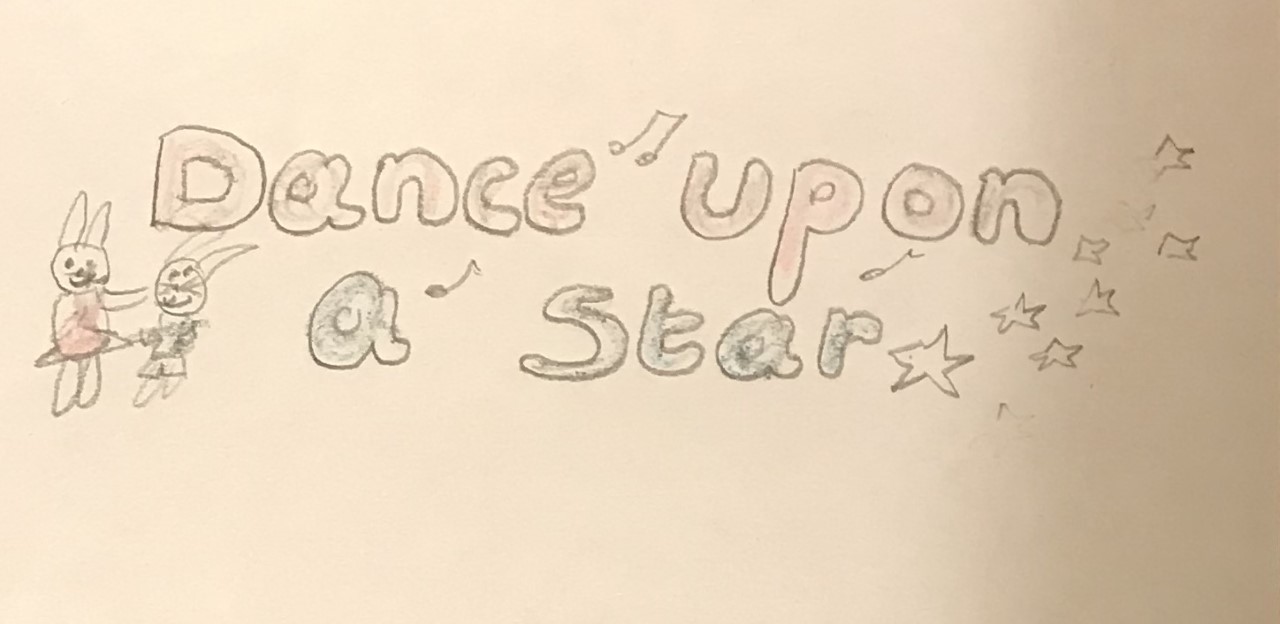 Dance upon
a Star